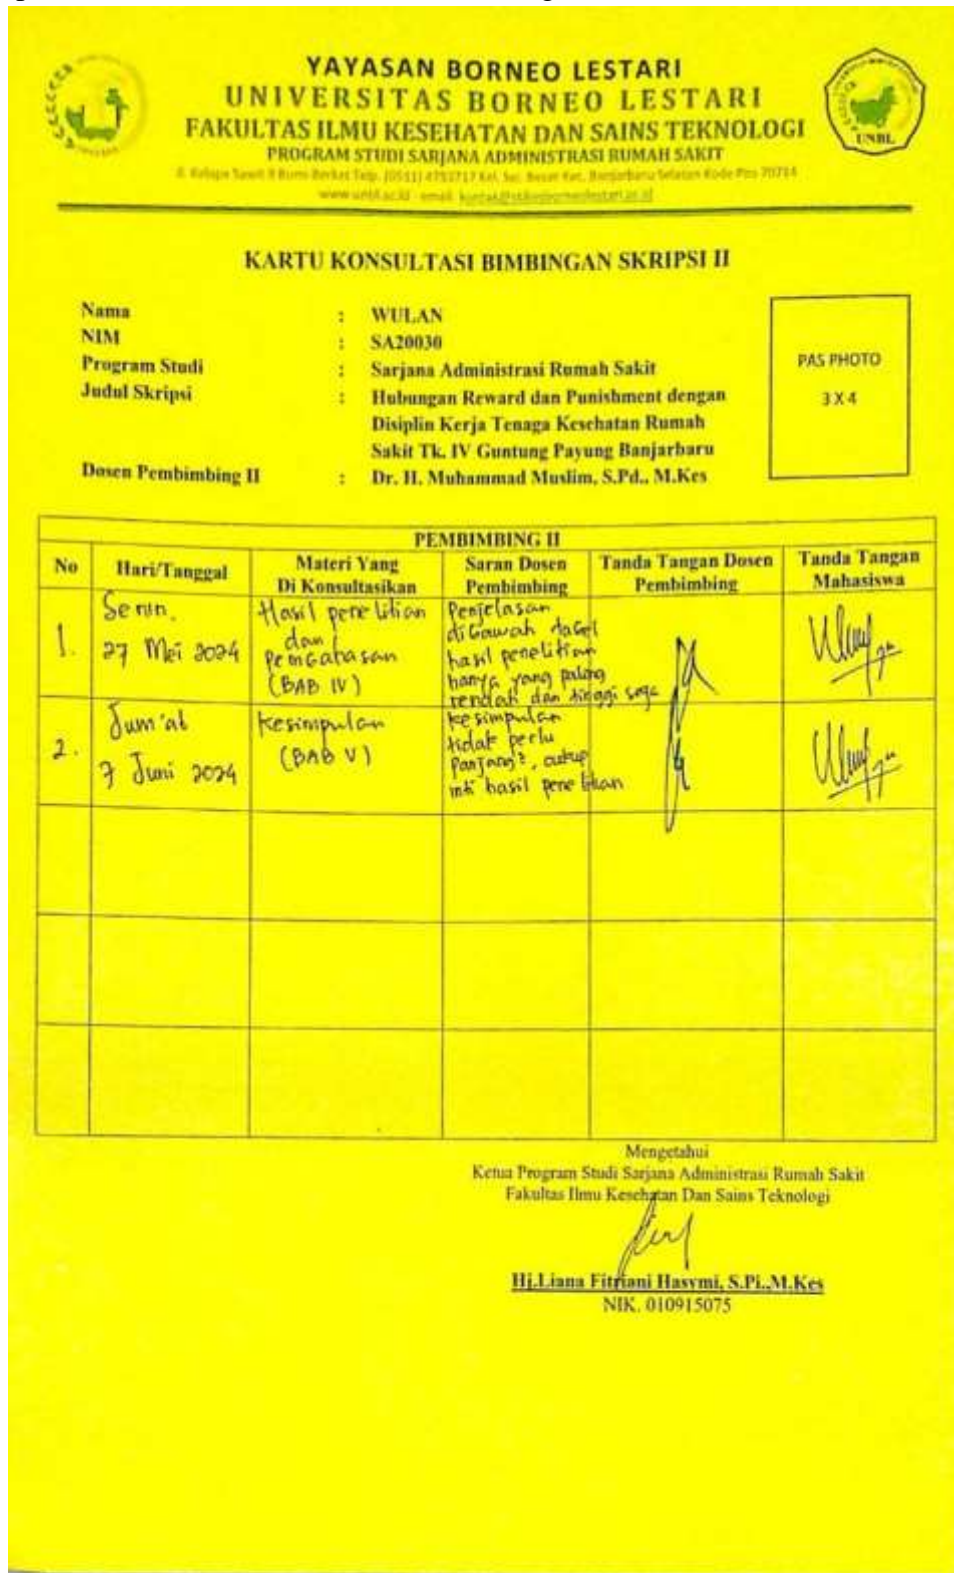 YAYASAN BORNEO LESTARI
UNIVERSITAS BORNEO LESTARI
FAKULTAS ILMU KESEHATAN DAN SAINS TEKNOLOGI
PROGRAM STUDI SARJANA ADMINISTRASI RUMAH SAKIT
Jl. Kelapa Sawit 8 Bumi Berkat Telp. (0511) 4783717 Kel. Sei. Besar Kec. Banjarbaru Selatan Kode Pos 70714
www.unbl.ac.id - email
UNBL
KARTU KONSULTASI BIMBINGAN SKRIPSI II
Nama : WULAN
NIM : SA20030
Program Studi : Sarjana Administrasi Rumah Sakit
Judul Skripsi : Hubungan Reward dan Punishment dengan
Disiplin Kerja Tenaga Kesehatan Rumah
Sakit Tk. IV Guntung Payung Banjarbaru
Dosen Pembimbing II : Dr. H. Muhammad Muslim, S.Pd., M.Kes
PAS PHOTO
3 X 4
PEMBIMBING II
No Hari/Tanggal Materi Yang Di Konsultasikan Saran Dosen Pembimbing Tanda Tangan Dosen Pembimbing Tanda Tangan Mahasiswa
1. Senin,
27 Mei 2024
Hasil penelitian
dan
pembahasan
(BAB IV)
Penjelasan
dibawah tabel
hasil penelitian
hanya yang paling
rendah dan tinggi saja
2. Jum'at
7 Juni 2024
Kesimpulan
(BAB V)
kesimpulan
tidak perlu
panjang², cukup
inti hasil penelitian
Mengetahui
Ketua Program Studi Sarjana Administrasi Rumah Sakit
Fakultas Ilmu Kesehatan Dan Sains Teknologi
Hj.Liana Fitriani Hasymi, S.Pi.,M.Kes
NIK. 010915075